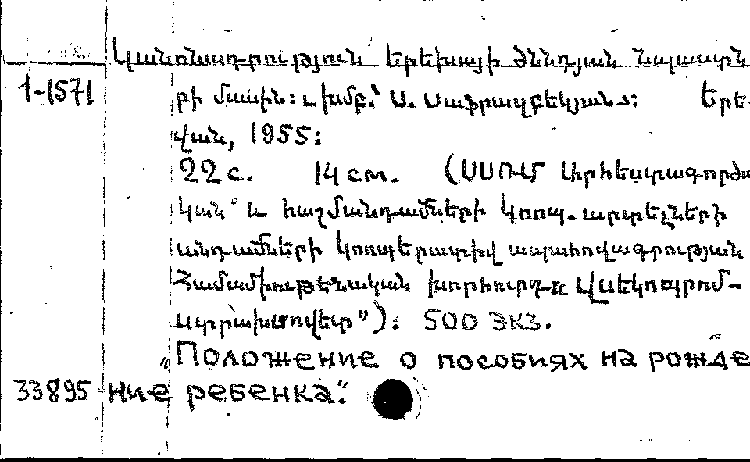 Կանոնադրություն երեխայի ծննդյան նպաստն
1-1571 րի մասին: Խմբ.՝ Ս. Սաֆրազբեկյան: Երե-
վան, 1955:
22 с. 14 см. (ՍՍՌՄ Արհեստագործա
կան և հաշմանդամների կոոպ. արտելների
անդամների կոոպերատիվ ապահովագրության
Համամիութենական խորհուրդ «Վսեկոպրոմ-
ստրախսովետ»): 500 экз.
„Положение о пособиях на рожде
33895 ние ребенка“.